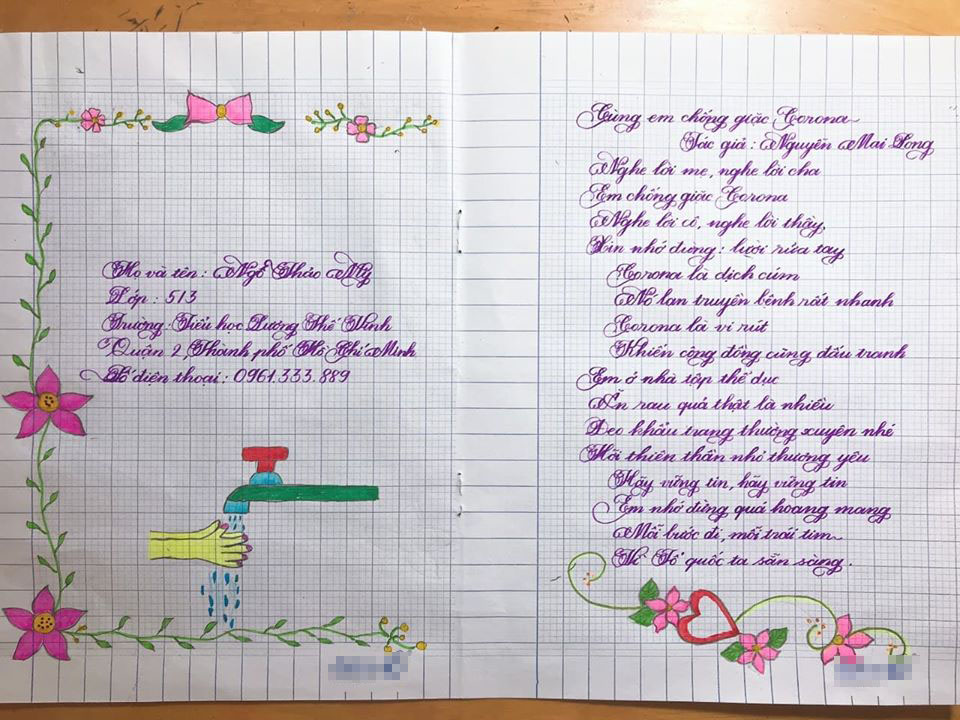 Họ và tên : Ngô Thảo My
Lớp : 5/3
Trường : Tiểu học Lương Thế Vinh
Quận 2, Thành phố Hồ Chí Minh
Số điện thoại : 0961.333.889
Cùng em chống giặc Corona
Tác giả : Nguyễn Mai Long
Nghe lời mẹ, nghe lời cha
Em chống giặc Corona
Nghe lời cô, nghe lời thầy,
Xin nhớ đừng : lười rửa tay
Corona là dịch cúm
Nó lan truyền bệnh rất nhanh
Corona là vi rút
Khiến cộng đồng cùng đấu tranh
Em ở nhà tập thể dục
Ăn rau quả thật là nhiều
Đeo khẩu trang thường xuyên nhé
Hỡi thiên thần nhỏ thương yêu
Hãy vững tin, hãy vững tin
Em nhớ đừng quá hoang mang
Mỗi bước đi, mỗi trái tim
Vì Tổ quốc ta sẵn sàng.